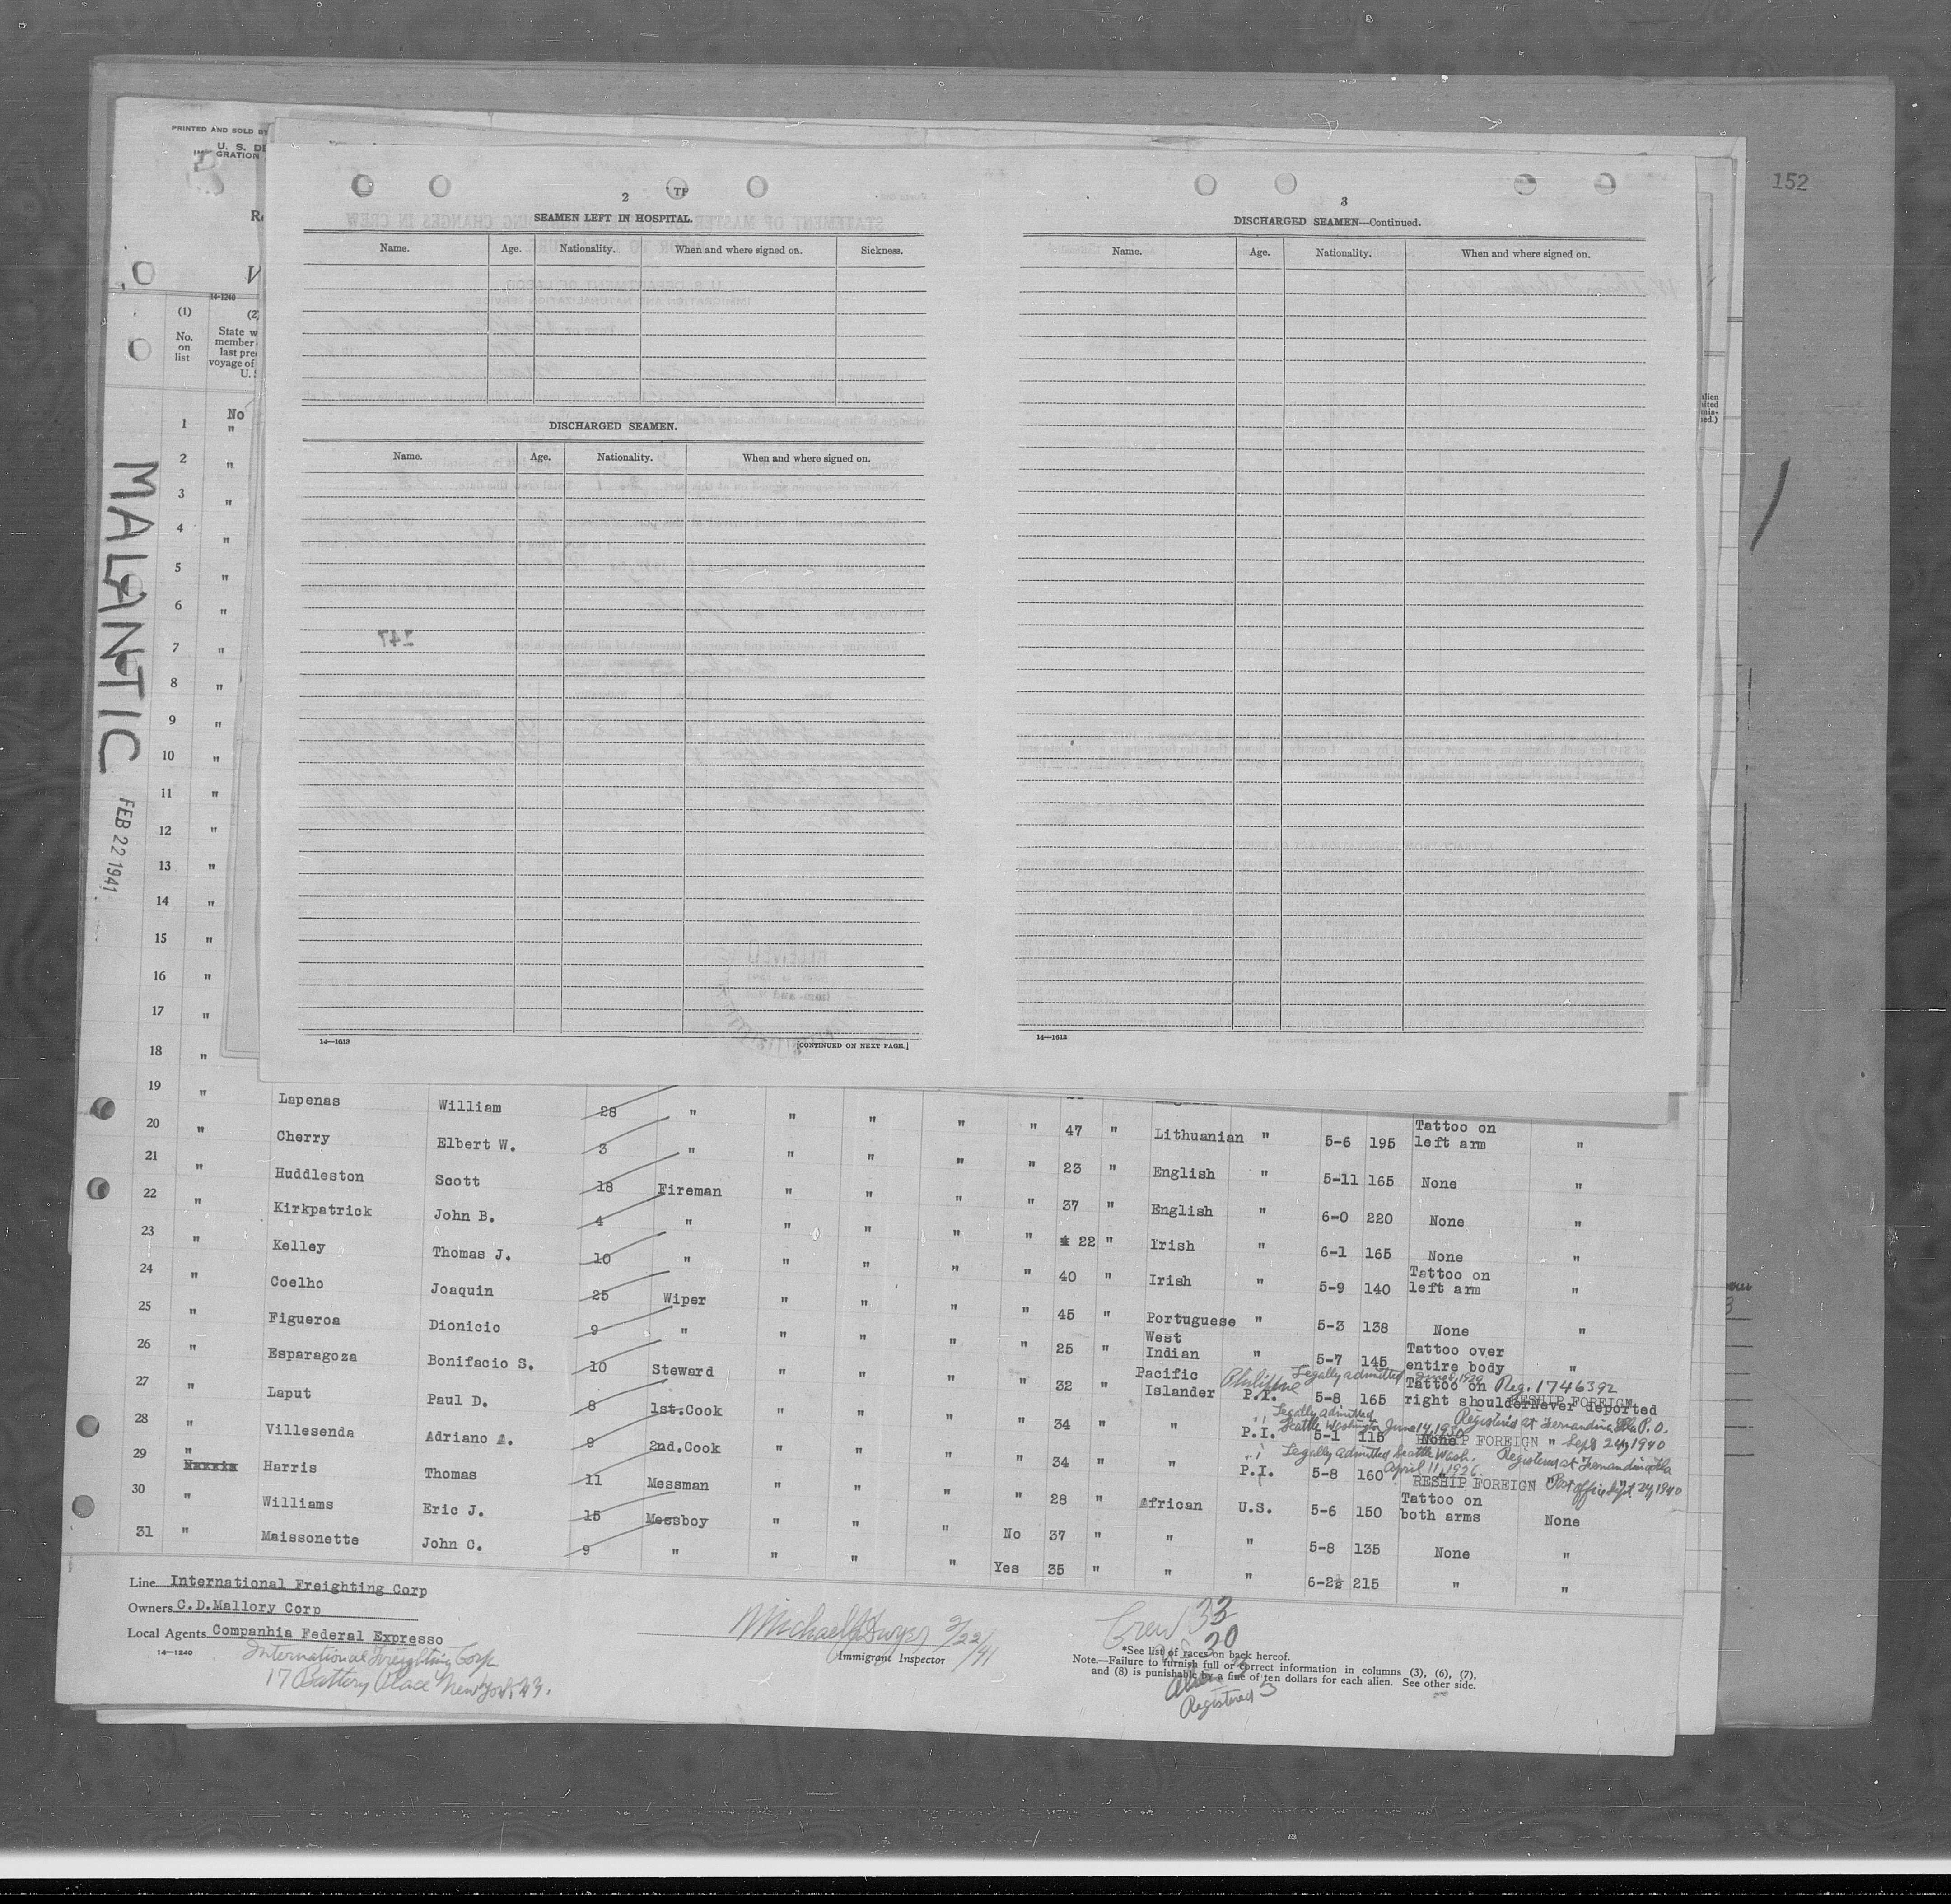 152
PRINTED AND SOLD BY
U. S. DE
IMMIGRATION
14-1240
(1)
No.
on
list
State w
member
last pre
voyage of
U. S
MALANTIC
FEB 22 1941
2
SEAMEN LEFT IN HOSPITAL.
Name. Age. Nationality. When and where signed on. Sickness.
DISCHARGED SEAMEN.
Name. Age. Nationality. When and where signed on.
14—1613
[CONTINUED ON NEXT PAGE.]
3
DISCHARGED SEAMEN—Continued.
Name. Age. Nationality. When and where signed on.
14—1613
1 No
"
2 "
3 "
4 "
5 "
6 "
7 "
8 "
9 "
10 "
11 "
12 "
13 "
14 "
15 "
16 "
17 "
18 "
19 " Lapenas William 28 " " " " " 47 " Lithuanian " 5-6 195 Tattoo on left arm "
20 " Cherry Elbert W. 3 " " " " " 23 " English " 5-11 165 None "
21 " Huddleston Scott 18 Fireman " " " " 37 " English " 6-0 220 None "
22 " Kirkpatrick John B. 4 " " " " " 22 " Irish " 6-1 165 None "
23 " Kelley Thomas J. 10 " " " " " 40 " Irish " 5-9 140 Tattoo on left arm "
24 " Coelho Joaquin 25 Wiper " " " " 45 " Portuguese " 5-3 138 None "
25 " Figueroa Dionicio 9 " " " " " 25 " West Indian " 5-7 145 Tattoo over entire body "
26 " Esparagoza Bonifacio S. 10 Steward " " " " 32 " Pacific Islander Philippine P.I. Legally admitted 5-8 165 Tattoo on right shoulder Reg. 1746392 RESHIP FOREIGN Never deported
27 " Laput Paul D. 8 1st.Cook " " " " 34 " " P.I. Legally admitted Seattle Washington June 14, 1930 5-1 115 None Registered at Fernandina Fla P.O. RESHIP FOREIGN " Sept 24, 1940
28 " Villesenda Adriano A. 9 2nd.Cook " " " " 34 " " P.I. Legally admitted Seattle Wash. April 11, 1926 5-8 160 Registered at Fernandina Fla RESHIP FOREIGN Post office Sept 24, 1940
29 " Harris Thomas 11 Messman " " " " 28 " African U.S. 5-6 150 Tattoo on both arms None
30 " Williams Eric J. 15 Messboy " " " No 37 " " " 5-8 135 None "
31 " Maissonette John C. 9 " " " " Yes 35 " " " 6-2½ 215 " "
Line International Freighting Corp
Owners C.D.Mallory Corp
Local Agents Companhia Federal Expresso
14—1240
International Freighting Corp
17 Battery Place New York, N.Y.
Michael J Dwyer 2/22/41
Immigrant Inspector
Crew 33
U.S. 30
Alien 3
Registered 3
*See list of races on back hereof.
Note.—Failure to furnish full or correct information in columns (3), (6), (7),
and (8) is punishable by a fine of ten dollars for each alien. See other side.